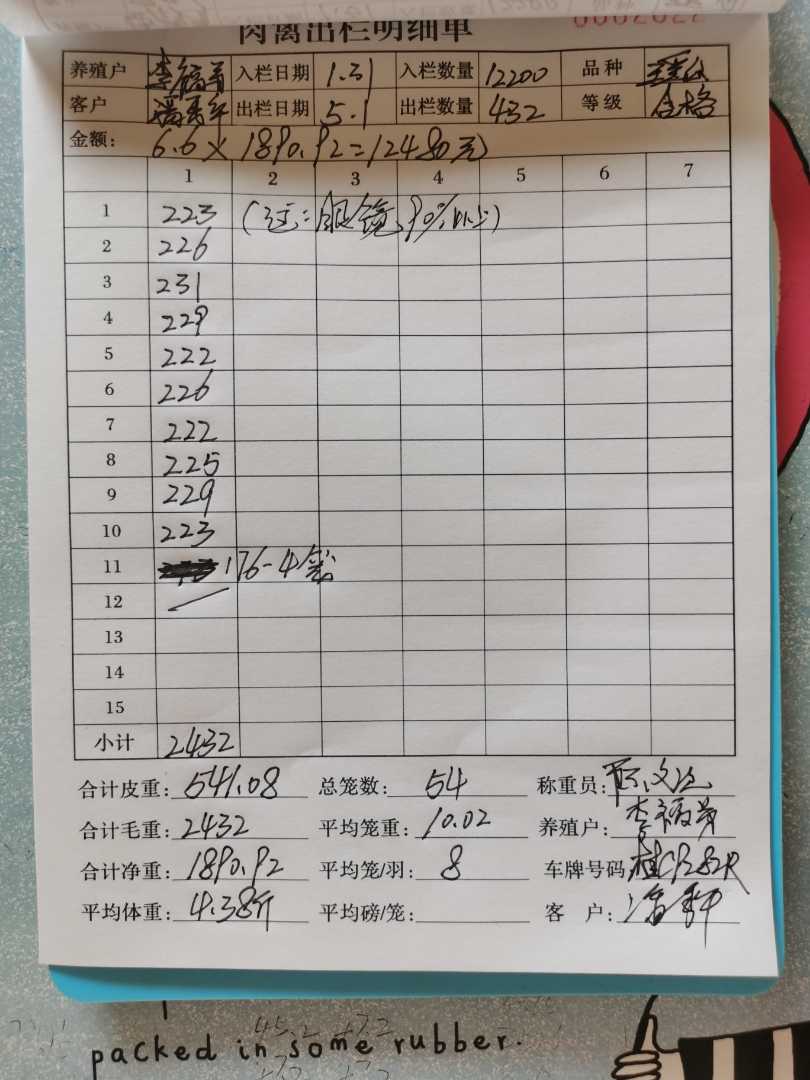 肉禽出栏明细单
0002022
养殖户 李福芳 入栏日期 1.31 入栏数量 12200 品种
客户 出栏日期 5.1 出栏数量 432 等级 合格
金额: 6.6×1890.92=12480元
1 2 3 4 5 6 7
1 223 (注:眼镜,90%以上)
2 226
3 231
4 229
5 222
6 226
7 222
8 225
9 229
10 223
11 176-4笼
12
13
14
15
小计 2432
合计皮重: 541.08 总笼数: 54 称重员:
合计毛重: 2432 平均笼重: 10.02 养殖户: 李福芳
合计净重: 1890.92 平均笼/羽: 8 车牌号码:
平均体重: 4.38斤 平均磅/笼: 客 户:
packed in some rubber.